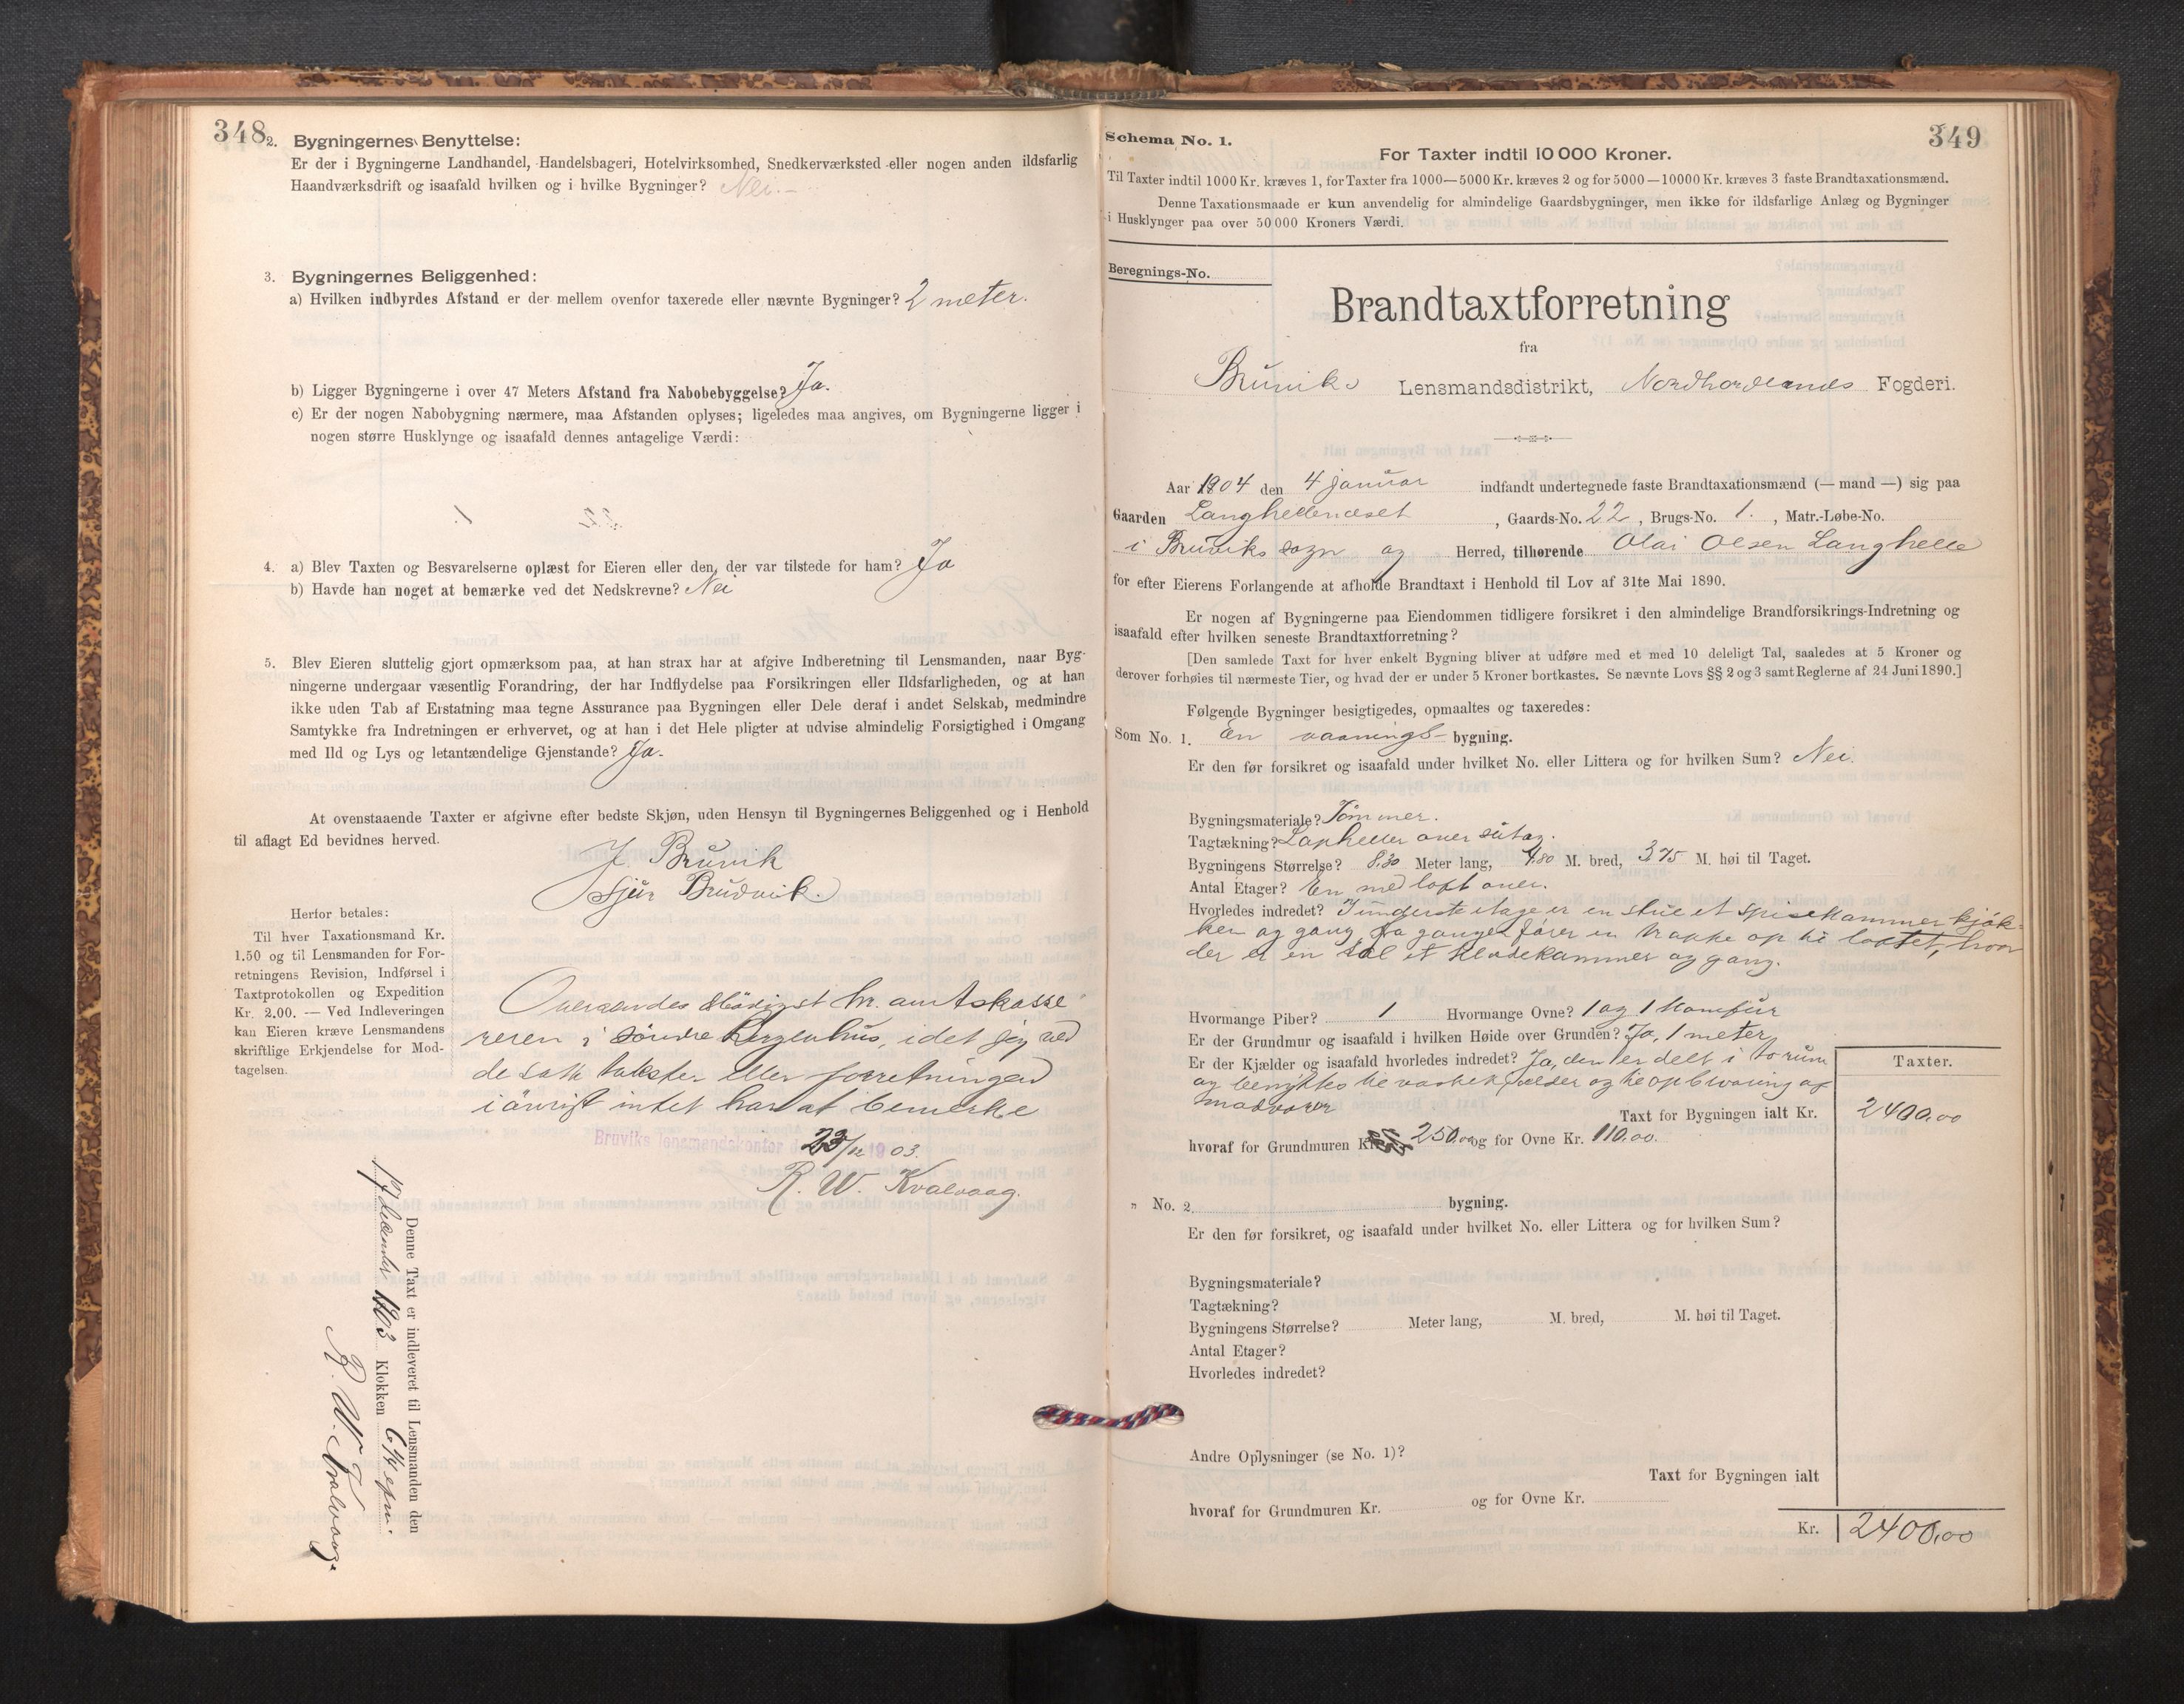 348
2. Bygningernes Benyttelse:
Er der i Bygningerne Landhandel, Handelsbageri, Hotelvirksomhed, Snedkerværksted eller nogen anden ildsfarlig
Haandværksdrift og isaafald hvilken og i hvilke Bygninger? Nei.-
3. Bygningernes Beliggenhed:
a) Hvilken indbyrdes Afstand er der mellem ovenfor taxerede eller nævnte Bygninger? 2 meter.
b) Ligger Bygningerne i over 47 Meters Afstand fra Nabobebyggelse? Ja.
c) Er der nogen Nabobygning nærmere, maa Afstanden oplyses; ligeledes maa angives, om Bygningerne ligger i
nogen større Husklynge og isaafald dennes antagelige Værdi:
4. a) Blev Taxten og Besvarelserne oplæst for Eieren eller den, der var tilstede for ham? Ja
b) Havde han noget at bemærke ved det Nedskrevne? Nei
5. Blev Eieren sluttelig gjort opmærksom paa, at han strax har at afgive Indberetning til Lensmanden, naar Byg-
ningerne undergaar væsentlig Forandring, der har Indflydelse paa Forsikringen eller Ildsfarligheden, og at han
ikke uden Tab af Erstatning maa tegne Assurance paa Bygningen eller Dele deraf i andet Selskab, medmindre
Samtykke fra Indretningen er erhvervet, og at han i det Hele pligter at udvise almindelig Forsigtighed i Omgang
med Ild og Lys og letantændelige Gjenstande? Ja.
At ovenstaaende Taxter er afgivne efter bedste Skjøn, uden Hensyn til Bygningernes Beliggenhed og i Henhold
til aflagt Ed bevidnes herved.
J. Bruvik
Sjur Brudvik.
Herfor betales:
Til hver Taxationsmand Kr.
1.50 og til Lensmanden for For-
retningens Revision, Indførsel i
Taxtprotokollen og Expedition
Kr. 2.00. — Ved Indleveringen
kan Eieren kræve Lensmandens
skriftlige Erkjendelse for Mod-
tagelsen.
Oversendes ærbødigst hr. amtskasse
reren i Søndre Bergenhus, idet jeg ved
de satte takster eller forretningen
iøvrigt intet har at bemerke
Bruviks lensmandskontor d 23/12 1903.
R. W. Kvalvaag.
Denne Taxt er indleveret til Lensmanden den
17 December 1903 Klokken 6 1/4 epm.
R. W. Kvalvaag.
349
Schema No. 1.
For Taxter indtil 10 000 Kroner.
Til Taxter indtil 1000 Kr. kræves 1, for Taxter fra 1000—5000 Kr. kræves 2 og for 5000—10000 Kr. kræves 3 faste Brandtaxationsmænd.
Denne Taxationsmaade er kun anvendelig for almindelige Gaardsbygninger, men ikke for ildsfarlige Anlæg og Bygninger
i Husklynger paa over 50 000 Kroners Værdi.
Beregnings-No.
Brandtaxtforretning
fra
Bruviks Lensmandsdistrikt, Nordhordlands Fogderi.
Aar 1904 den 4 januar indfandt undertegnede faste Brandtaxationsmænd (— mand —) sig paa
Gaarden Langhellenæset, Gaards-No. 22, Brugs-No. 1., Matr.-Løbe-No.
i Bruviks sogn og Herred, tilhørende Olai Olsen Langhelle
for efter Eierens Forlangende at afholde Brandtaxt i Henhold til Lov af 31te Mai 1890.
Er nogen af Bygningerne paa Eiendommen tidligere forsikret i den almindelige Brandforsikrings-Indretning og
isaafald efter hvilken seneste Brandtaxtforretning?
[Den samlede Taxt for hver enkelt Bygning bliver at udføre med et med 10 deleligt Tal, saaledes at 5 Kroner og
derover forhøies til nærmeste Tier, og hvad der er under 5 Kroner bortkastes. Se nævnte Lovs §§ 2 og 3 samt Reglerne af 24 Juni 1890.]
Følgende Bygninger besigtigedes, opmaaltes og taxeredes:
Som No. 1. En vaanings- bygning.
Er den før forsikret og isaafald under hvilket No. eller Littera og for hvilken Sum? Nei.
Bygningsmateriale? Tømmer.
Tagtækning? Lapheller over sutag.
Bygningens Størrelse? 8,30 Meter lang, 4,80 M. bred, 3,75 M. høi til Taget.
Antal Etager? En med loft over.
Hvorledes indredet? I underste etage er en stue et spisekammer kjøk-
ken og gang fra gangen fører en trappe op til loftet, hvor
der er en sal et klædekammer og gang.
Hvormange Piber? 1 Hvormange Ovne? 1 og 1 komfur
Er der Grundmur og isaafald i hvilken Høide over Grunden? Ja, 1 meter
Er der Kjælder og isaafald hvorledes indredet? Ja, den er delt i to rum
og benyttes til vaskekjælder og til opbevaring af
madvarer
Taxter.
Taxt for Bygningen ialt Kr. 2400,00
hvoraf for Grundmuren Kr. 250.00 og for Ovne Kr. 110.00.
„ No. 2. bygning.
Er den før forsikret, og isaafald under hvilket No. eller Littera og for hvilken Sum?
Bygningsmateriale?
Tagtækning?
Bygningens Størrelse? Meter lang, M. bred, M. høi til Taget.
Antal Etager?
Hvorledes indredet?
Andre Oplysninger (se No. 1)?
Taxt for Bygningen ialt
hvoraf for Grundmuren Kr. og for Ovne Kr.
Kr. 2400,00